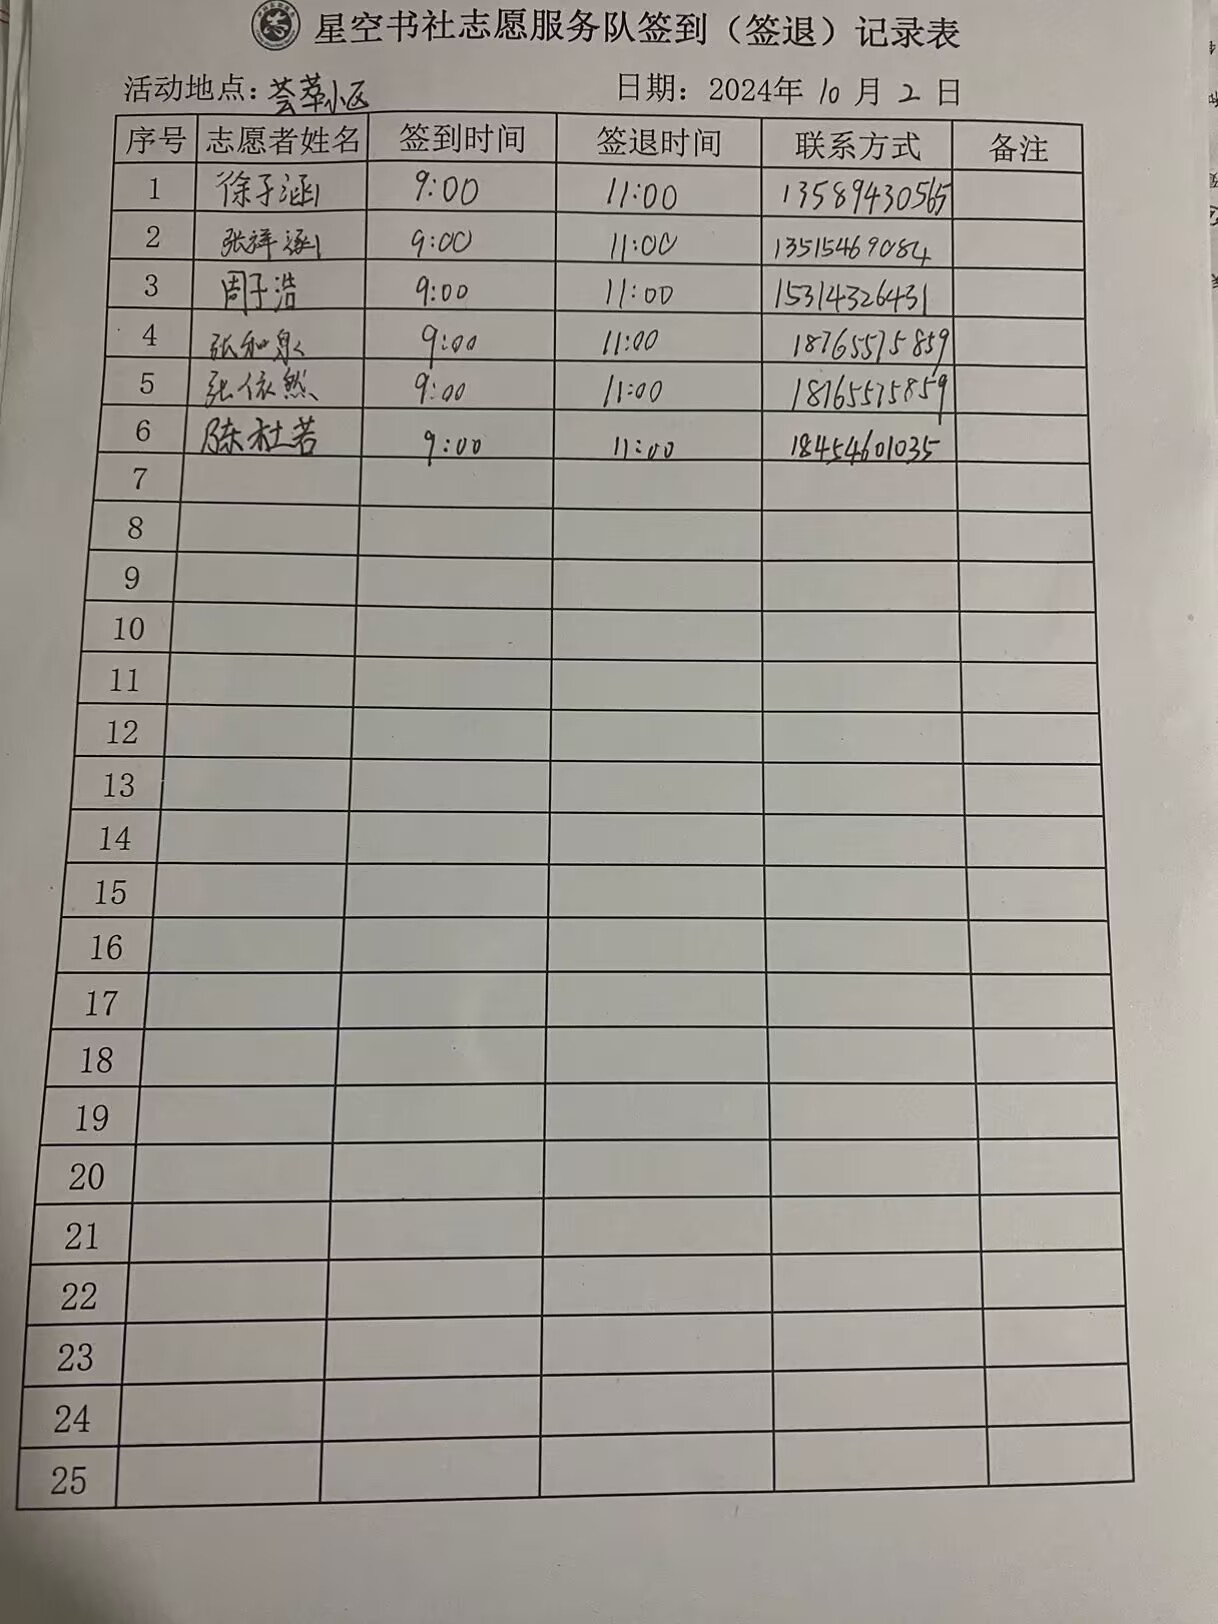 星空书社志愿服务队签到（签退）记录表
活动地点：荟萃小区 日期：2024年 10 月 2 日
序号 志愿者姓名 签到时间 签退时间 联系方式 备注
1 徐子涵 9:00 11:00 13589430565
2 张祥涵 9:00 11:00 13515469084
3 周子浩 9:00 11:00 15314326431
4 张和泉 9:00 11:00 18765575859
5 张依然 9:00 11:00 18765575859
6 陈杜若 9:00 11:00 18454601035
7
8
9
10
11
12
13
14
15
16
17
18
19
20
21
22
23
24
25